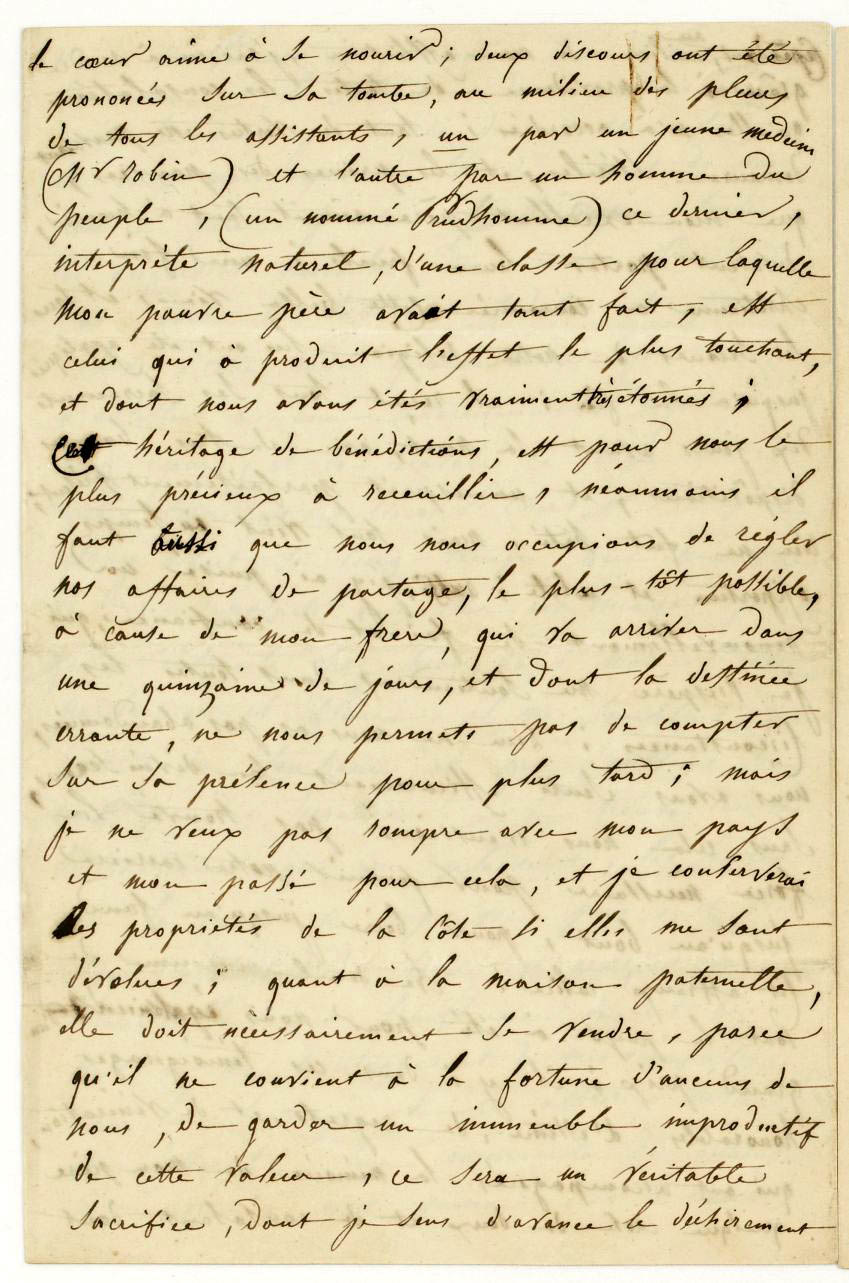 le cœur aime à se nourir ; deux discours ont été
prononcés sur sa tombe, au milieu des pleurs
de tous les assistants, un par un jeune medecin
(Mr Robin) et l'autre par un homme du
peuple, (un nommé Prudhomme) ce dernier,
interprète naturel, d'une classe pour laquelle
mon pauvre père avait tant fait, est
celui qui à produit l'effet le plus touchant,
et dont nous avons étés vraiment très étonnés ;
Cet héritage de bénédictions, est pour nous le
plus précieux à receuillir, néanmoins il
faut aussi que nous nous occupions de régler
nos affaires de partage, le plus-tôt possible,
à cause de mon frere, qui va arriver dans
une quinzaine de jours, et dont la destinée
errante, ne nous permets pas de compter
sur sa présence pour plus tard ; mais
je ne veux pas rompre avec mon pays
et mon passé pour cela, et je conserverai
les propriétés de la Côte si elles me sont
dévolues ; quant à la maison paternelle,
elle doit nécessairement se vendre, parce
qu'il ne convient à la fortune d'aucuns de
nous, de garder un immeuble improductif
de cette valeur, ce sera un véritable
sacrifice, dont je sens d'avance le déchirement